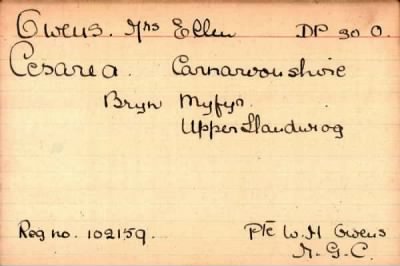 Owens. Mrs Ellen DP 30 O.
Cesarea. Carnarvonshire
Bryn Myfyr
Upper Llandwrog
Reg no. 102159. Pte W. H Owens
M. G. C.